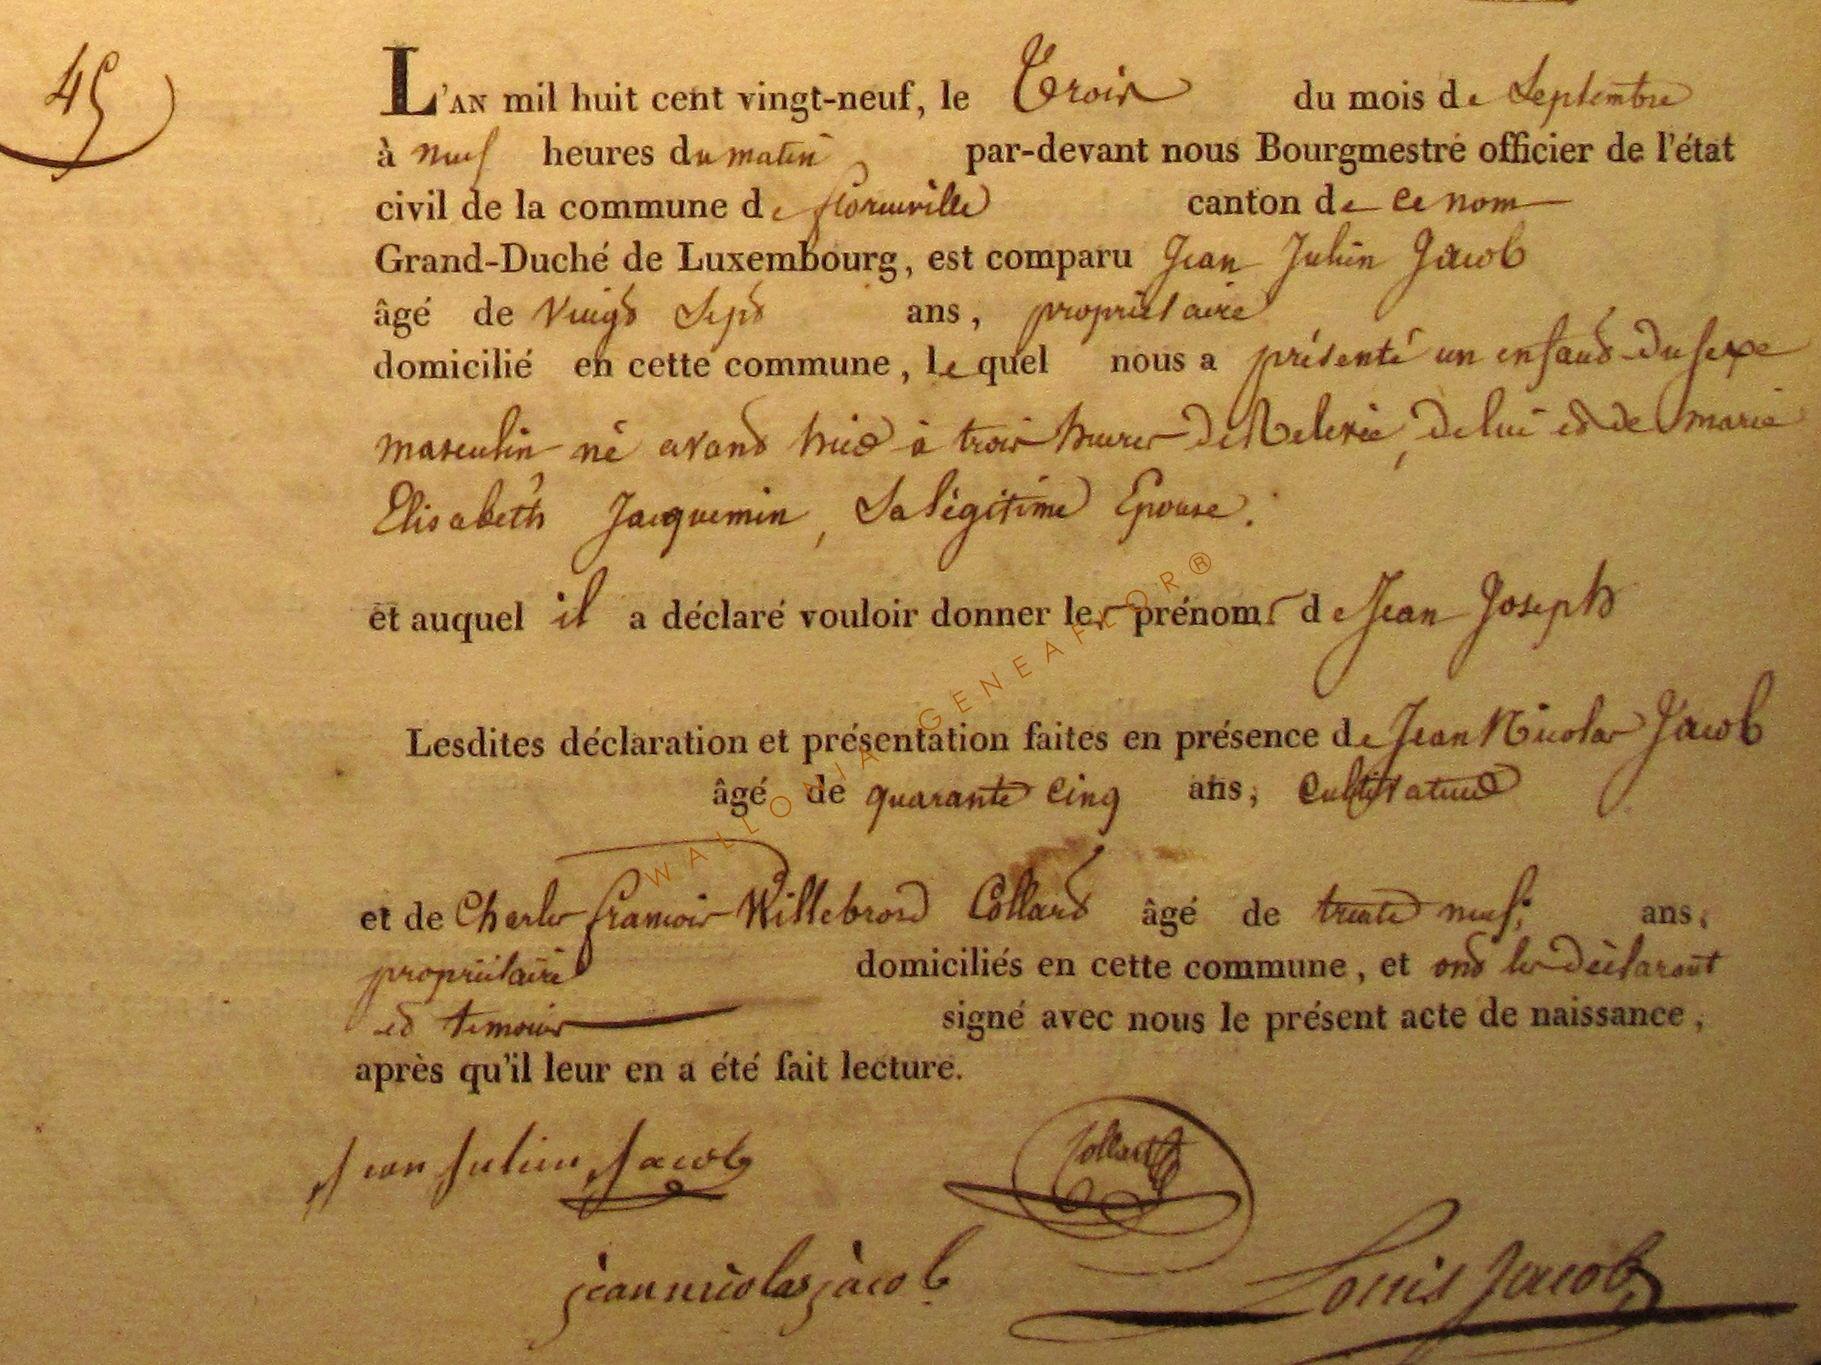 45
L'AN mil huit cent vingt-neuf, le Trois du mois de Septembre
à neuf heures du matin, par-devant nous Bourgmestre officier de l'état
civil de la commune de florenville canton de ce nom
Grand-Duché de Luxembourg, est comparu Jean Julien Jacob
âgé de vingt Sept ans, propriétaire
domicilié en cette commune, lequel nous a présenté un enfant du sexe
masculin né avant hier à trois heures de Relevée, de lui et de marie
Elisabeth Jacquemin, Sa légitime Epouse.
et auquel il a déclaré vouloir donner les prénoms de Jean Joseph
Lesdites déclaration et présentation faites en présence de Jean Nicolas Jacob
âgé de quarante cinq ans, cultivateur
et de Charles françois Willebrord Collard âgé de trente neuf ans,
propriétaire domiciliés en cette commune, et ont les déclarant
et temoins signé avec nous le présent acte de naissance,
après qu'il leur en a été fait lecture.
Jean Julien Jacob Collard
jean nicolas jacob Louis Jacob
WALLONIA GENEAFLOR®